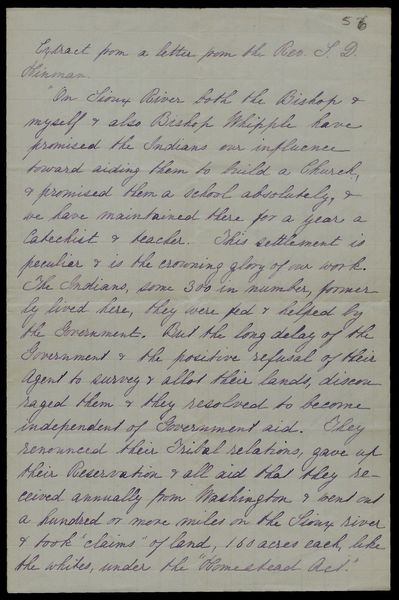 56
Extract from a letter from the Rev. S. D.
Hinman.
"On Sioux River both the Bishop &
myself & also Bishop Whipple have
promised the Indians our influence
toward aiding them to build a Church,
& promised them a school absolutely, &
we have maintained there for a year a
Catechist & teacher. This settlement is
peculiar & is the crowning glory of our work.
The Indians, some 300 in number, former-
ly lived here, they were fed & helped by
the Government. But the long delay of the
Government & the positive refusal of their
Agent to survey & allot their lands, discou
raged them & they resolved to become
independent of Government aid. They
renounced their Tribal relations, gave up
their Reservation & all aid that they re-
ceived annually from Washington & went out
a hundred or more miles on the Sioux river
& took "claims" of land, 160 acres each, like
the whites, under the "Homestead Act."